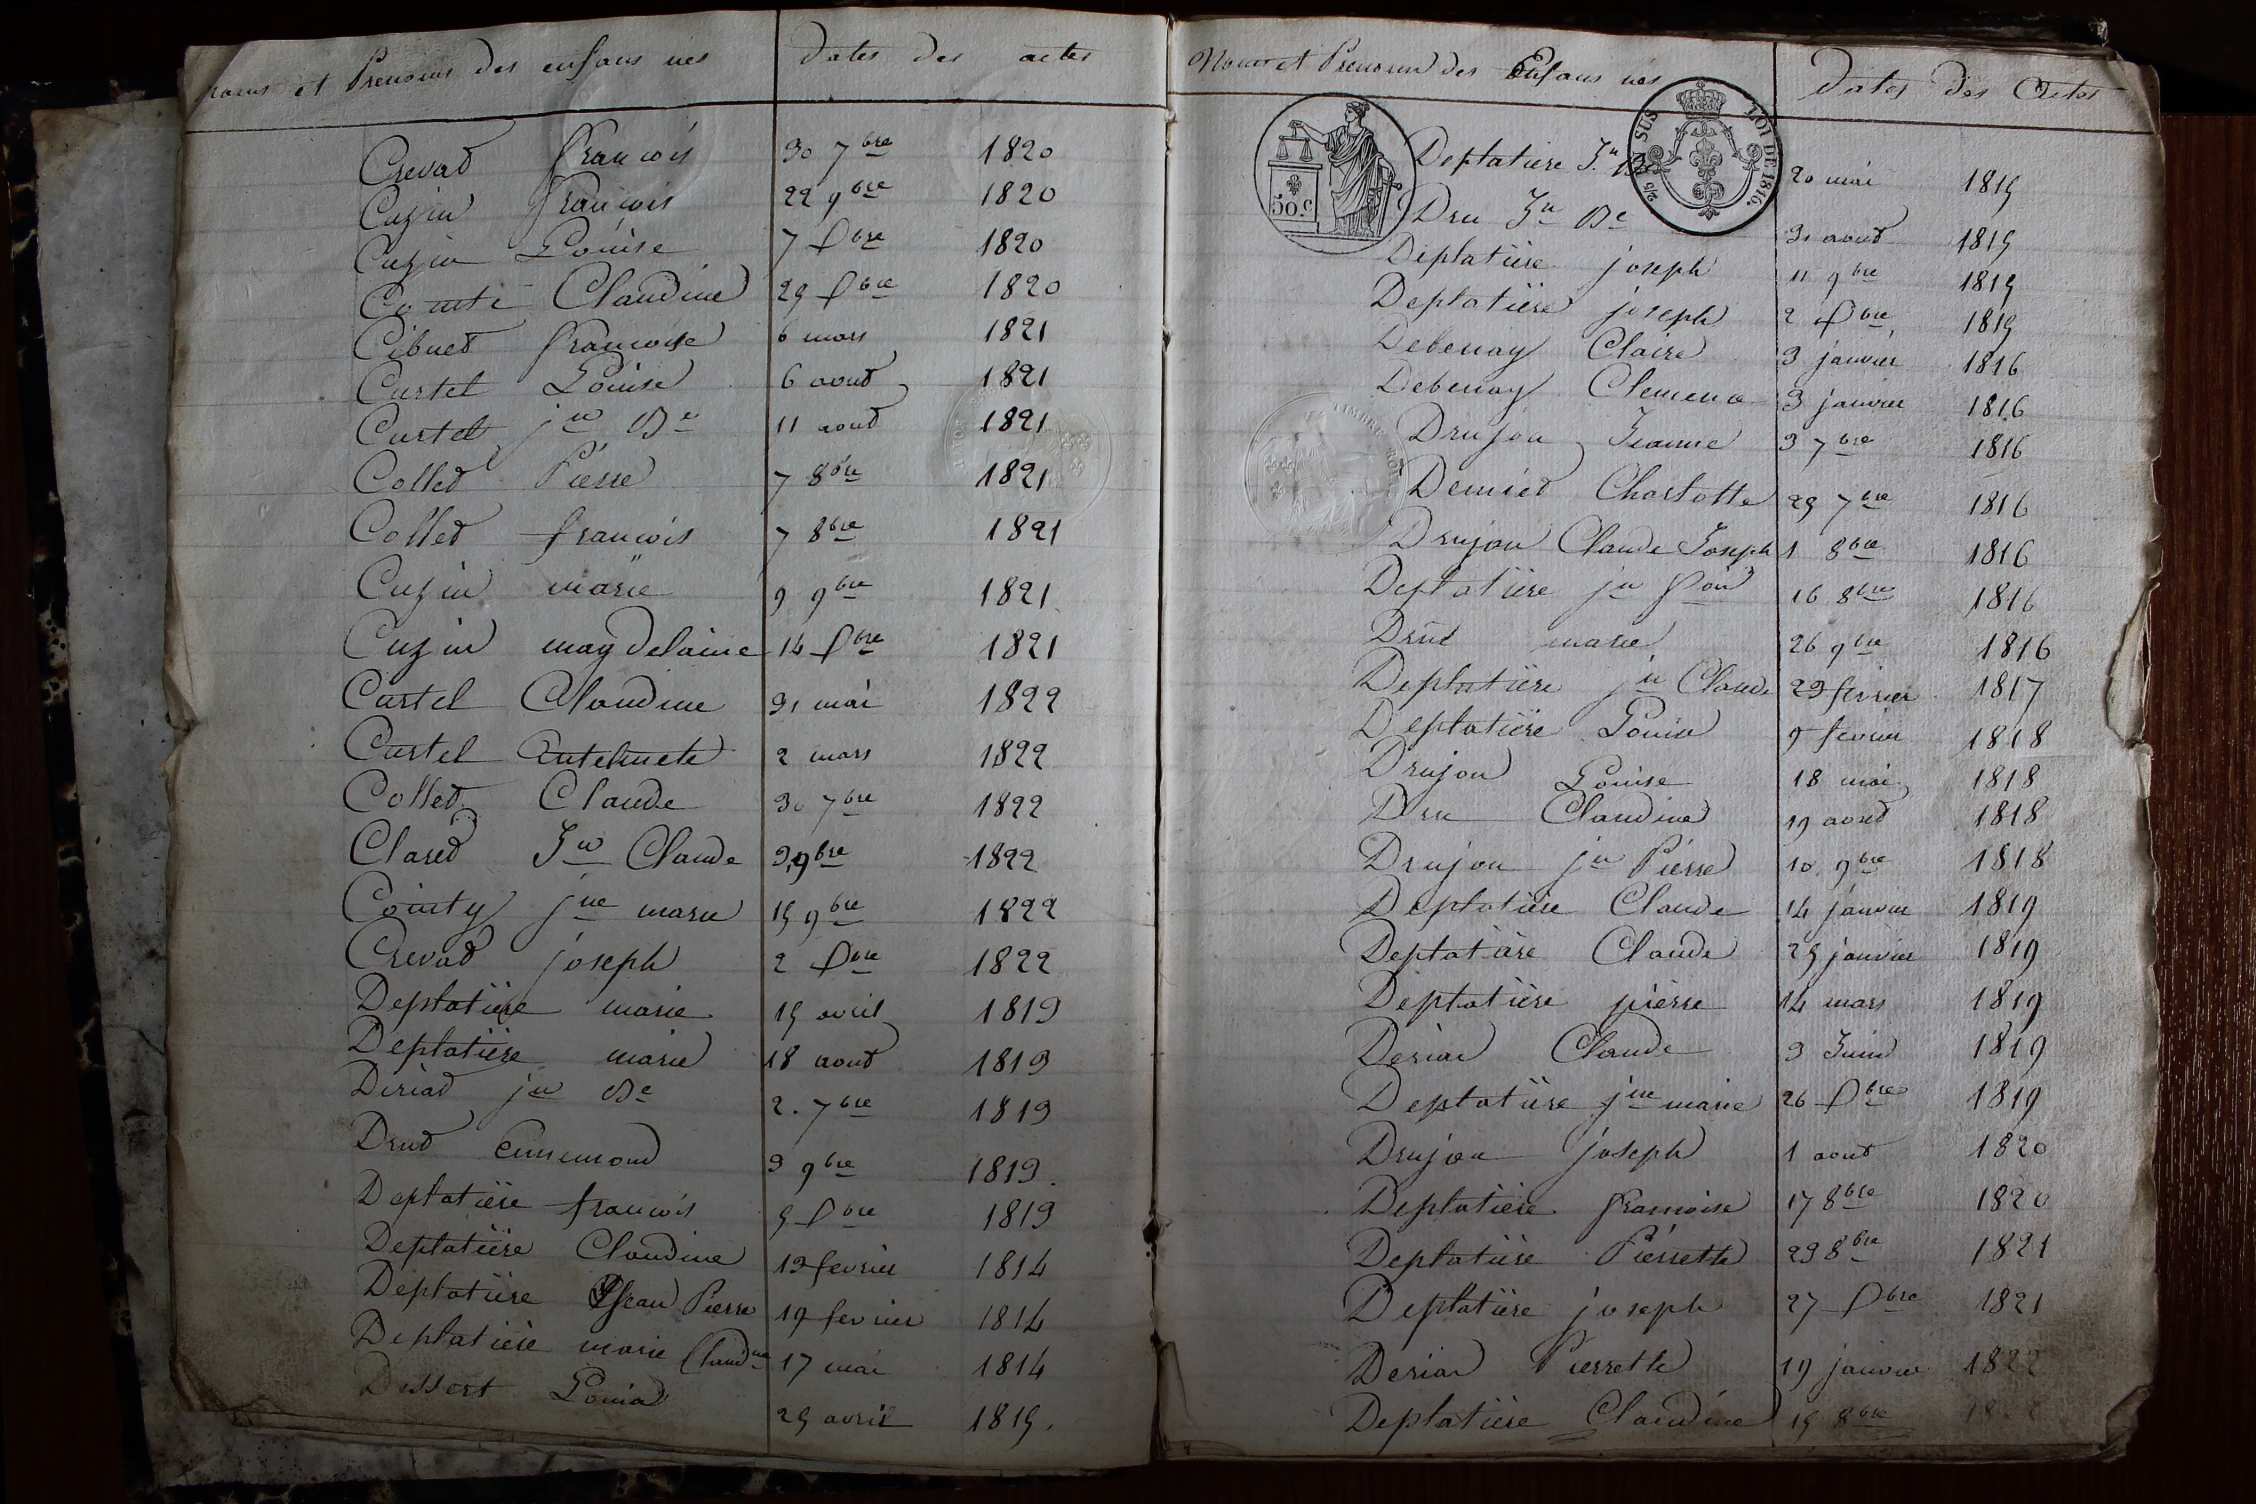 noms et Prenoms des enfans nés dates des actes
Crevat françois 30 7bre 1820
Cuzin françois 22 9bre 1820
Cuzin Louise 7 Xbre 1820
Comte Claudine 25 Xbre 1820
Cibuet francoise 6 mars 1821
Curtel Louise 6 aout 1821
Curtet jn Bte 11 aout 1821
Collet Pierre 7 8bre 1821
Collet francois 7 8bre 1821
Cuzin marie 9 9bre 1821
Cuzin magdelaine 14 Xbre 1821
Curtel Claudine 31 mai 1822
Curtel Antelmete 2 mars 1822
Collet Claude 30 7bre 1822
Claret Jn Claude 3 9bre 1822
Cointy jne marie 15 9bre 1822
Crevat joseph 2 Xbre 1822
Deplatière marie 15 avril 1813
Deplatière marie 18 aout 1813
Deriat jn Bte 2. 7bre 1813
Drut Ennemond 3 9bre 1813.
Deplatière francois 5 Xbre 1813
Deplatière Claudine 13 fevrier 1814
Deplatière Jean Pierre 19 fevrier 1814
Deplatière marie Claudne 17 mai 1814
Dessert Louis 25 avril 1815.
Noms et Prenoms des Enfans nés Dates des Actes
50.C
LOI DE 1816.
Deplatière Jn 20 mai 1815
Dru Jn Bte 31 aout 1815
Deplatière joseph 11 9bre 1815
Deplatière joseph 2 Xbre 1815
Debenay Claire 3 janvier 1816
Debenay Clemence 3 janvier 1816
Drujon Jeanne 3 7bre 1816
Demiet Charlotte 23 7bre 1816
Drujon Claude Joseph 1 8bre 1816
Deplatière jn 16 8bre 1816
Drut marie 26 9bre 1816
Deplatière jn Claude 23 fevrier 1817
Deplatière Louis 9 fevrier 1818
Drujon Louise 18 mai 1818
Dru Claudine 19 aout 1818
Drujon jn Pierre 10 9bre 1818
Deplatière Claude 14 janvier 1819
Deplatière Claude 25 janvier 1819
Deplatière pierre 14 mars 1819
Deriat Claude 3 Juin 1819
Deplatière jne marie 26 Xbre 1819
Drujon joseph 1 aout 1820
Deplatière francoise 17 8bre 1820
Deplatière Pierrette 23 8bre 1821
Deplatière joseph 27 Xbre 1821
Deriat Pierrette 19 janvier 1822
Deplatière Claudine 15 8bre